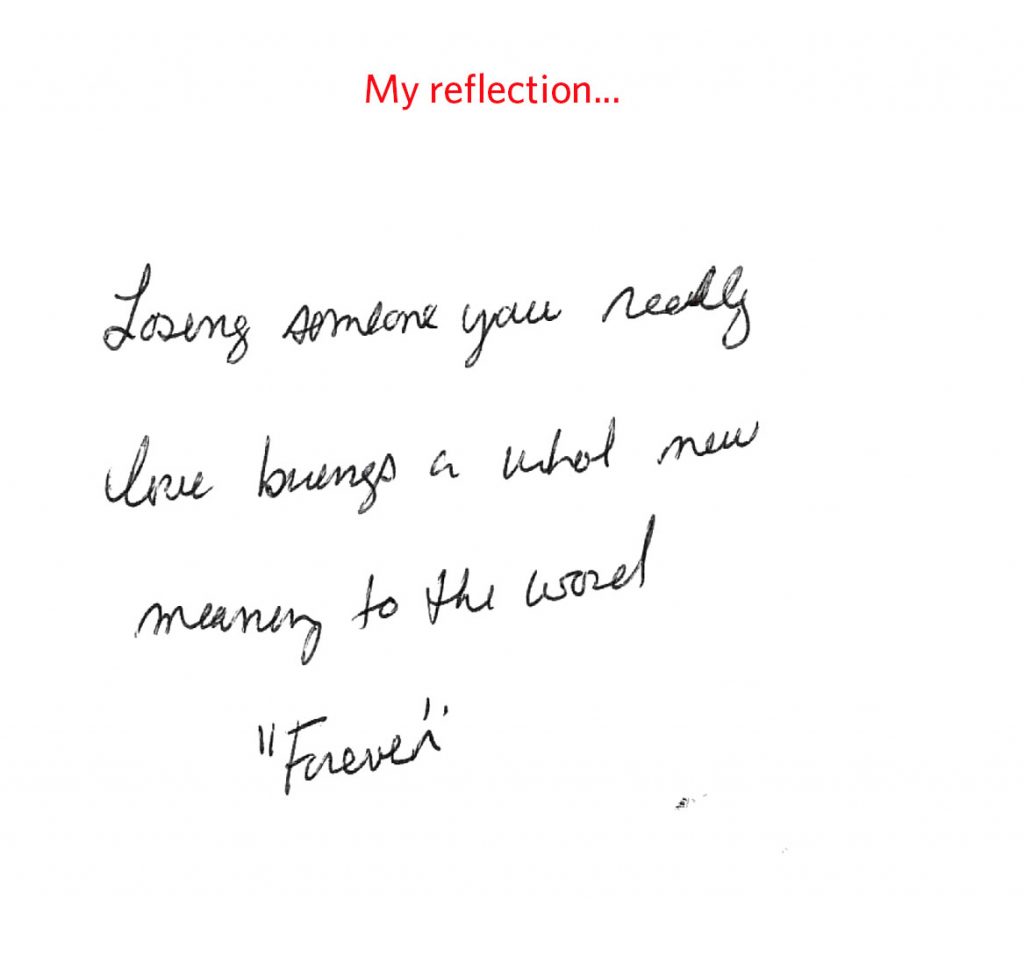 My reflection...
Losing someone you really
love brings a whol new
meaning to the word
"Forever"